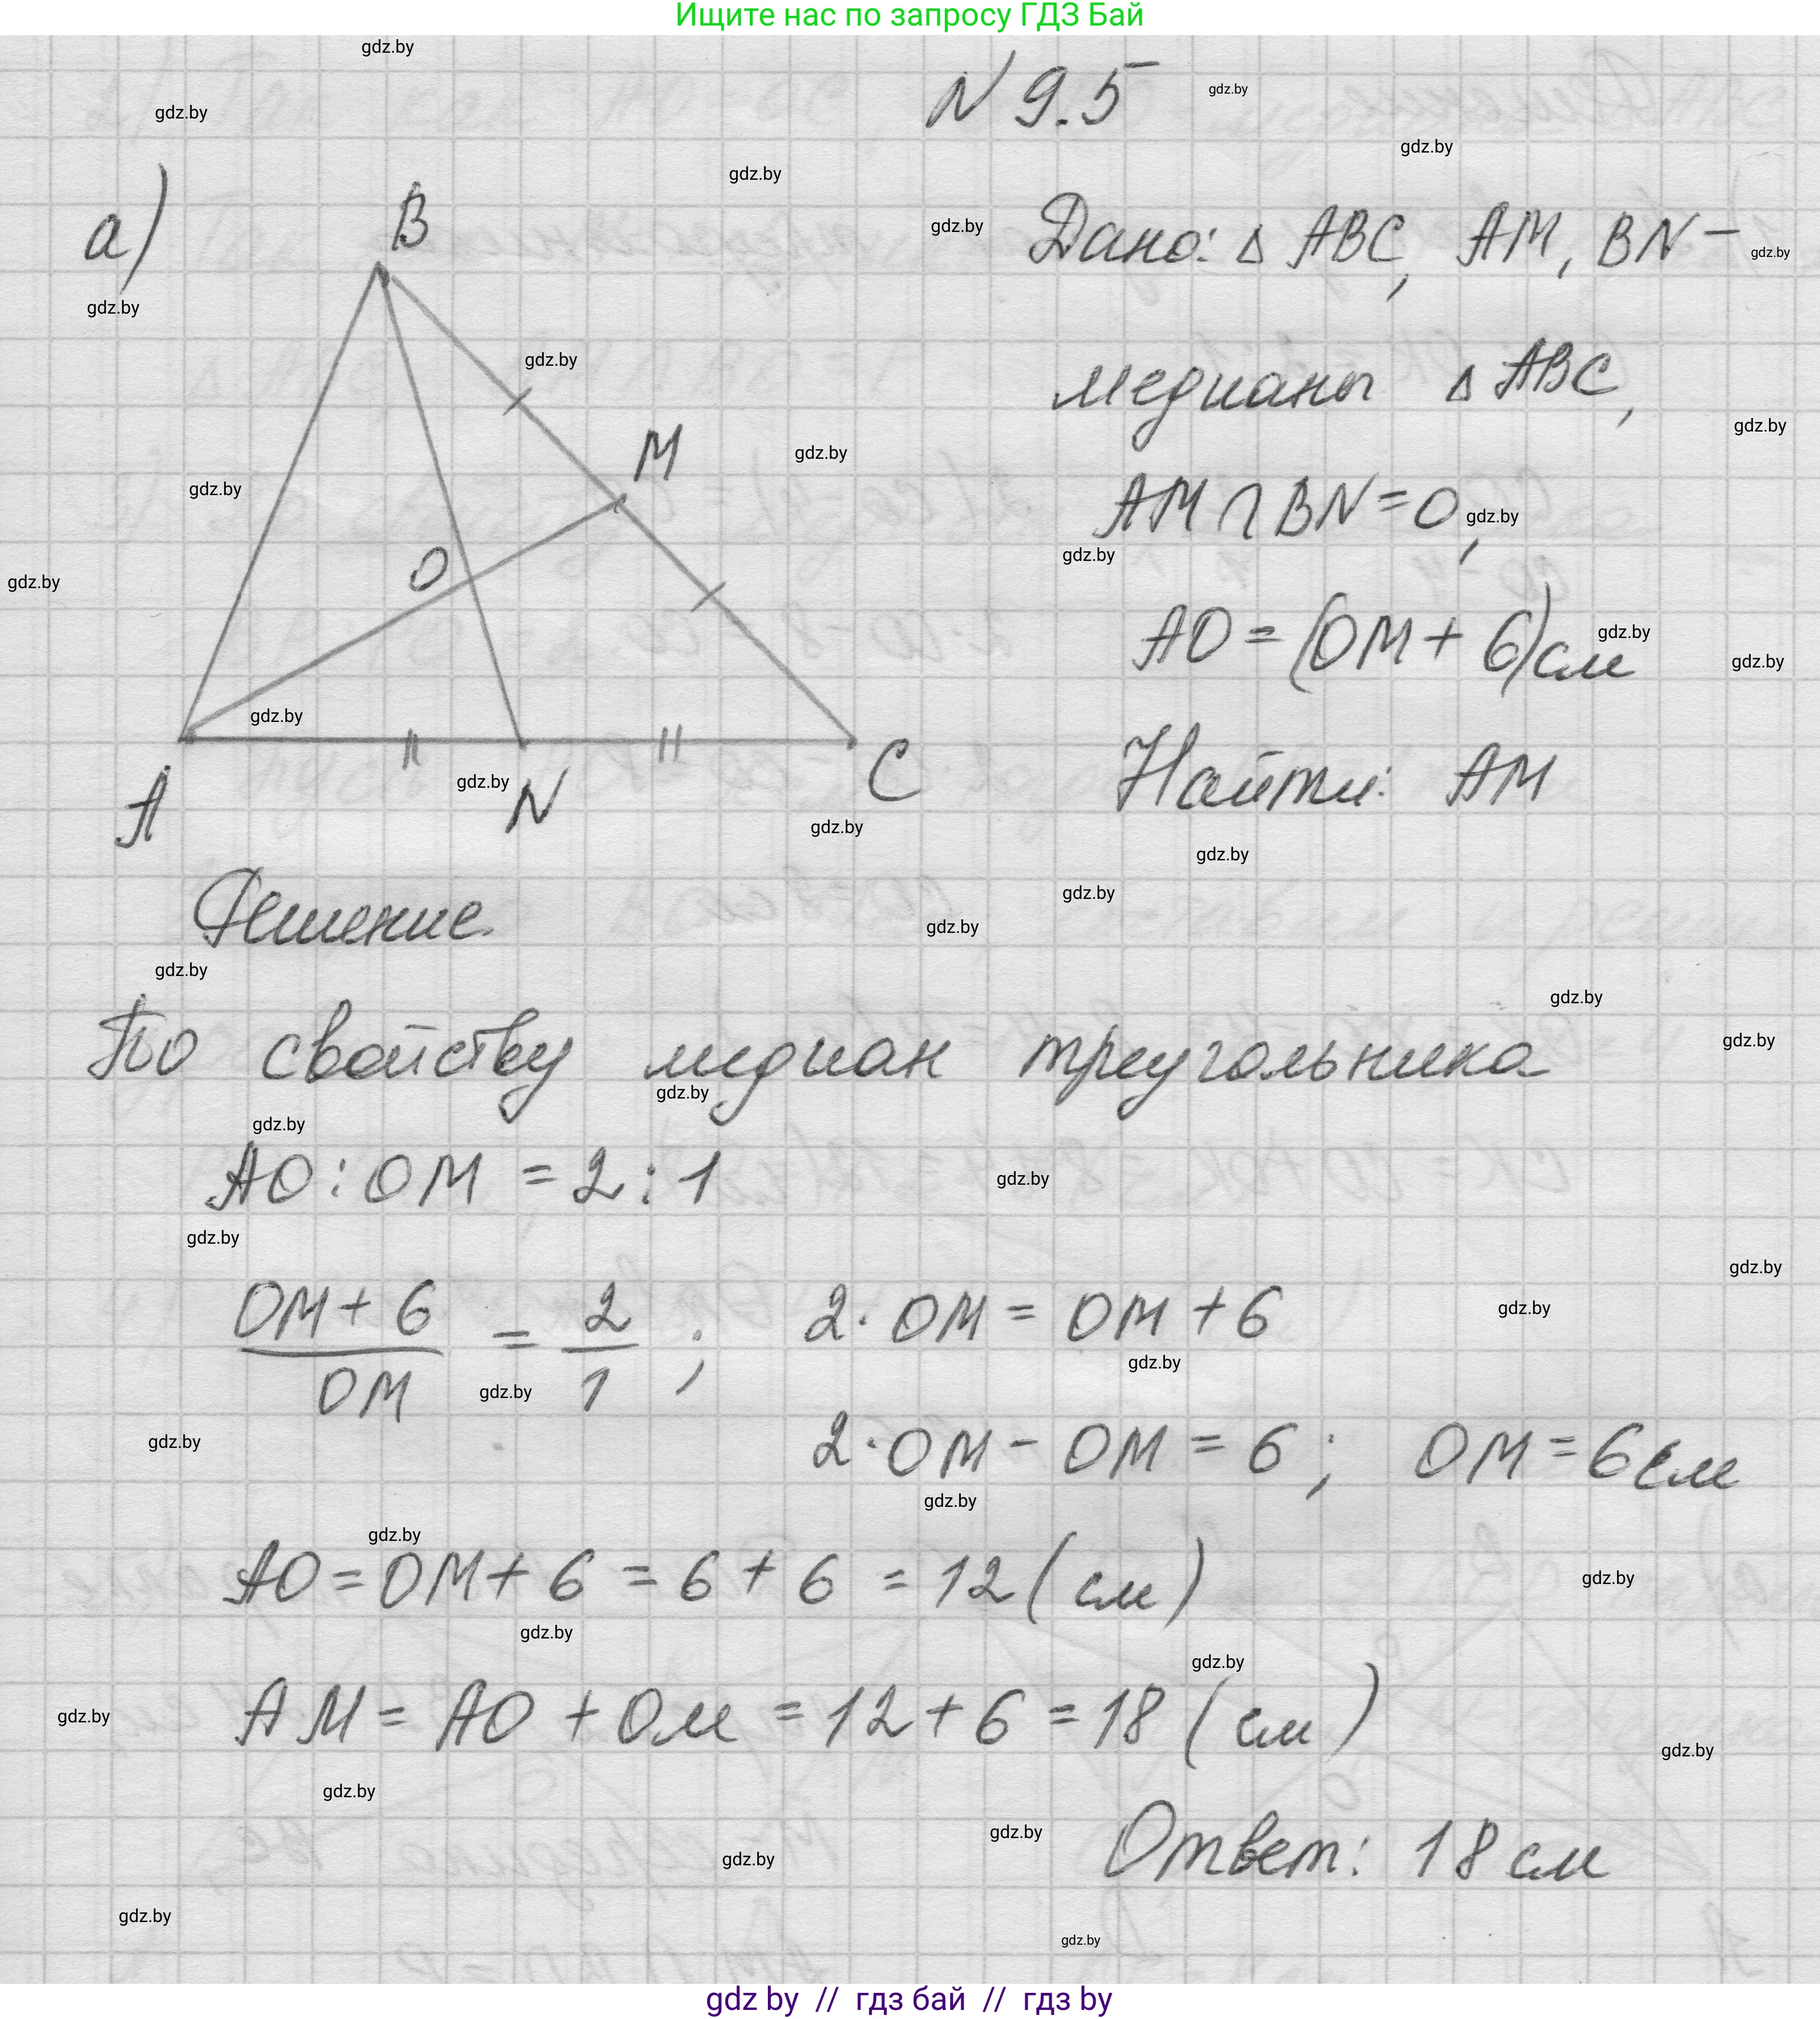 Ищите нас по запросу ГДЗ Бай
N 9.5
а)
Дано: Δ ABC, AM, BN –
медианы Δ ABC,
AM ∩ BN = O,
AO = (OM + 6) см
Найти: AM
B
M
O
A
N
C
Решение.
По свойству медиан треугольника
AO : OM = 2 : 1
OM + 6 / OM = 2 / 1 ; 2 · OM = OM + 6
2 · OM – OM = 6 ; OM = 6 см
AO = OM + 6 = 6 + 6 = 12 ( см )
AM = AO + OM = 12 + 6 = 18 ( см )
Ответ: 18 см
gdz by // гдз бай // гдз by